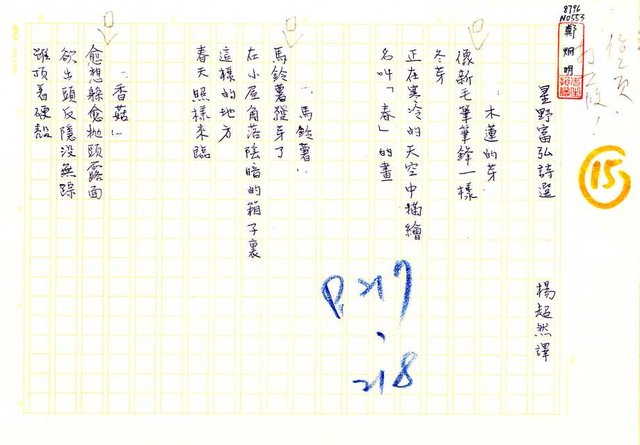 8796
N0553
鄭烱明
15
星野富弘詩選
楊超然譯
．木蓮的芽．
像新毛筆筆鋒一樣
冬芽
正在寒冷的天空中描繪
名叫「春」的畫
．馬鈴薯．
馬鈴薯發芽了
在小屋角落陰暗的箱子裏
這樣的地方
春天照樣來臨
．香菇．
愈想躲愈拋頭露面
欲出頭反隱没無踪
雖頂着硬殼
P.217
、
218